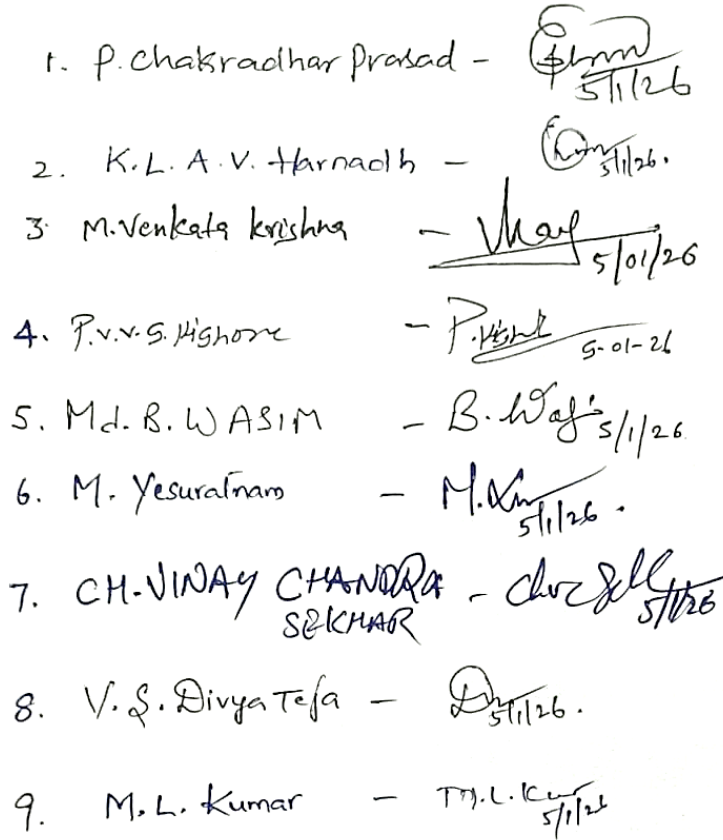 1. P. Chakradhar Prasad - 5/1/26
2. K.L.A.V. Harnadh - 5/1/26.
3. M. Venkata krishna - 5/01/26
4. P.V.V.S. Kishore - P. 5-01-26
5. Md. B. WASIM - B. 5/1/26
6. M. Yesuratnam - M. 5/1/26.
7. CH. VINAY CHANDRA - 5/1/26
SEKHAR
8. V.S. Divya Teja - 5/1/26.
9. M.L. Kumar - M.L. 5/1/26